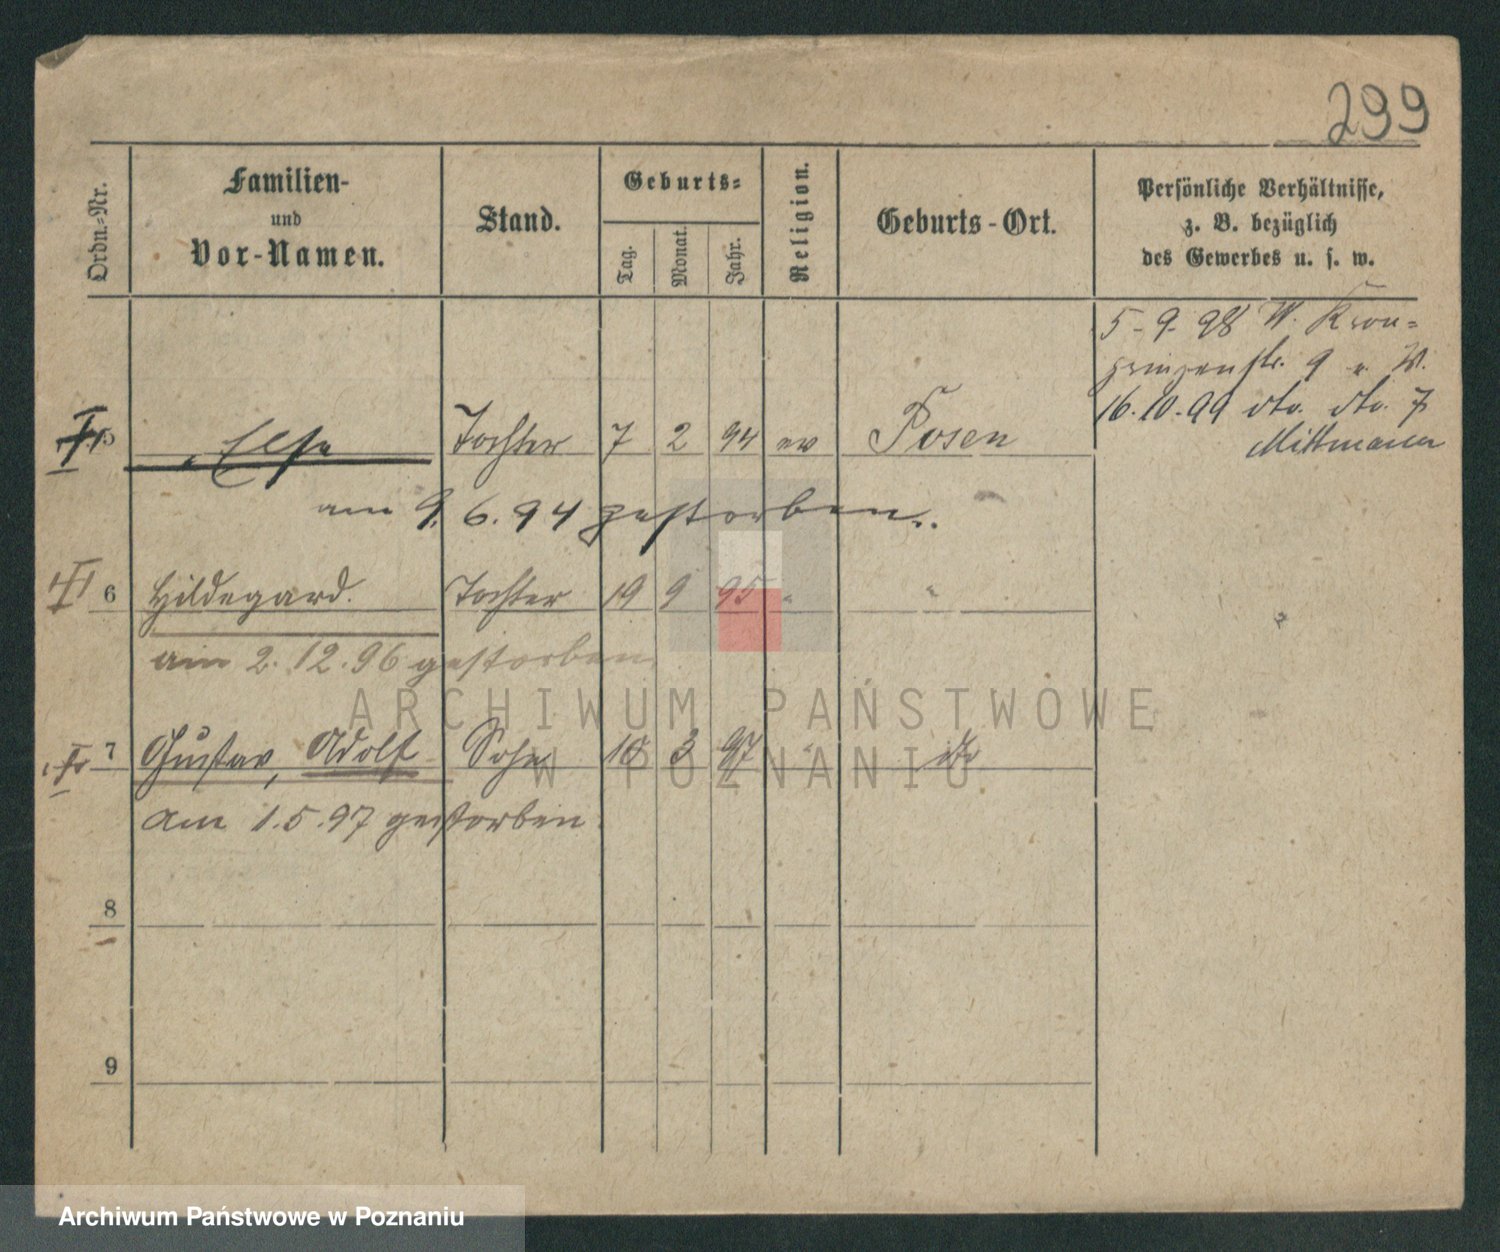 299
Ordn.-Nr.
Familien-
und
Vor-Namen.
Stand.
Geburts-
Tag.
Monat.
Jahr.
Religion.
Geburts-Ort.
Persönliche Verhältnisse,
z. B. bezüglich
des Gewerbes u. s. w.
5-9-98 W. Kron-
prinzenstr. 9 v. W.
16.10.99 dto. dto. 7
Mittmann
5 Else Tochter 7 2 94 ev Posen
am 9. 6. 94 gestorben.
6 Hildegard. Tochter 19 9 95 " "
am 2. 12. 96 gestorben
7 Gustav, Adolf Sohn 18 3 97 " do
am 1. 5. 97 gestorben
8
9
ARCHIWUM PAŃSTWOWE
W POZNANIU
Archiwum Państwowe w Poznaniu